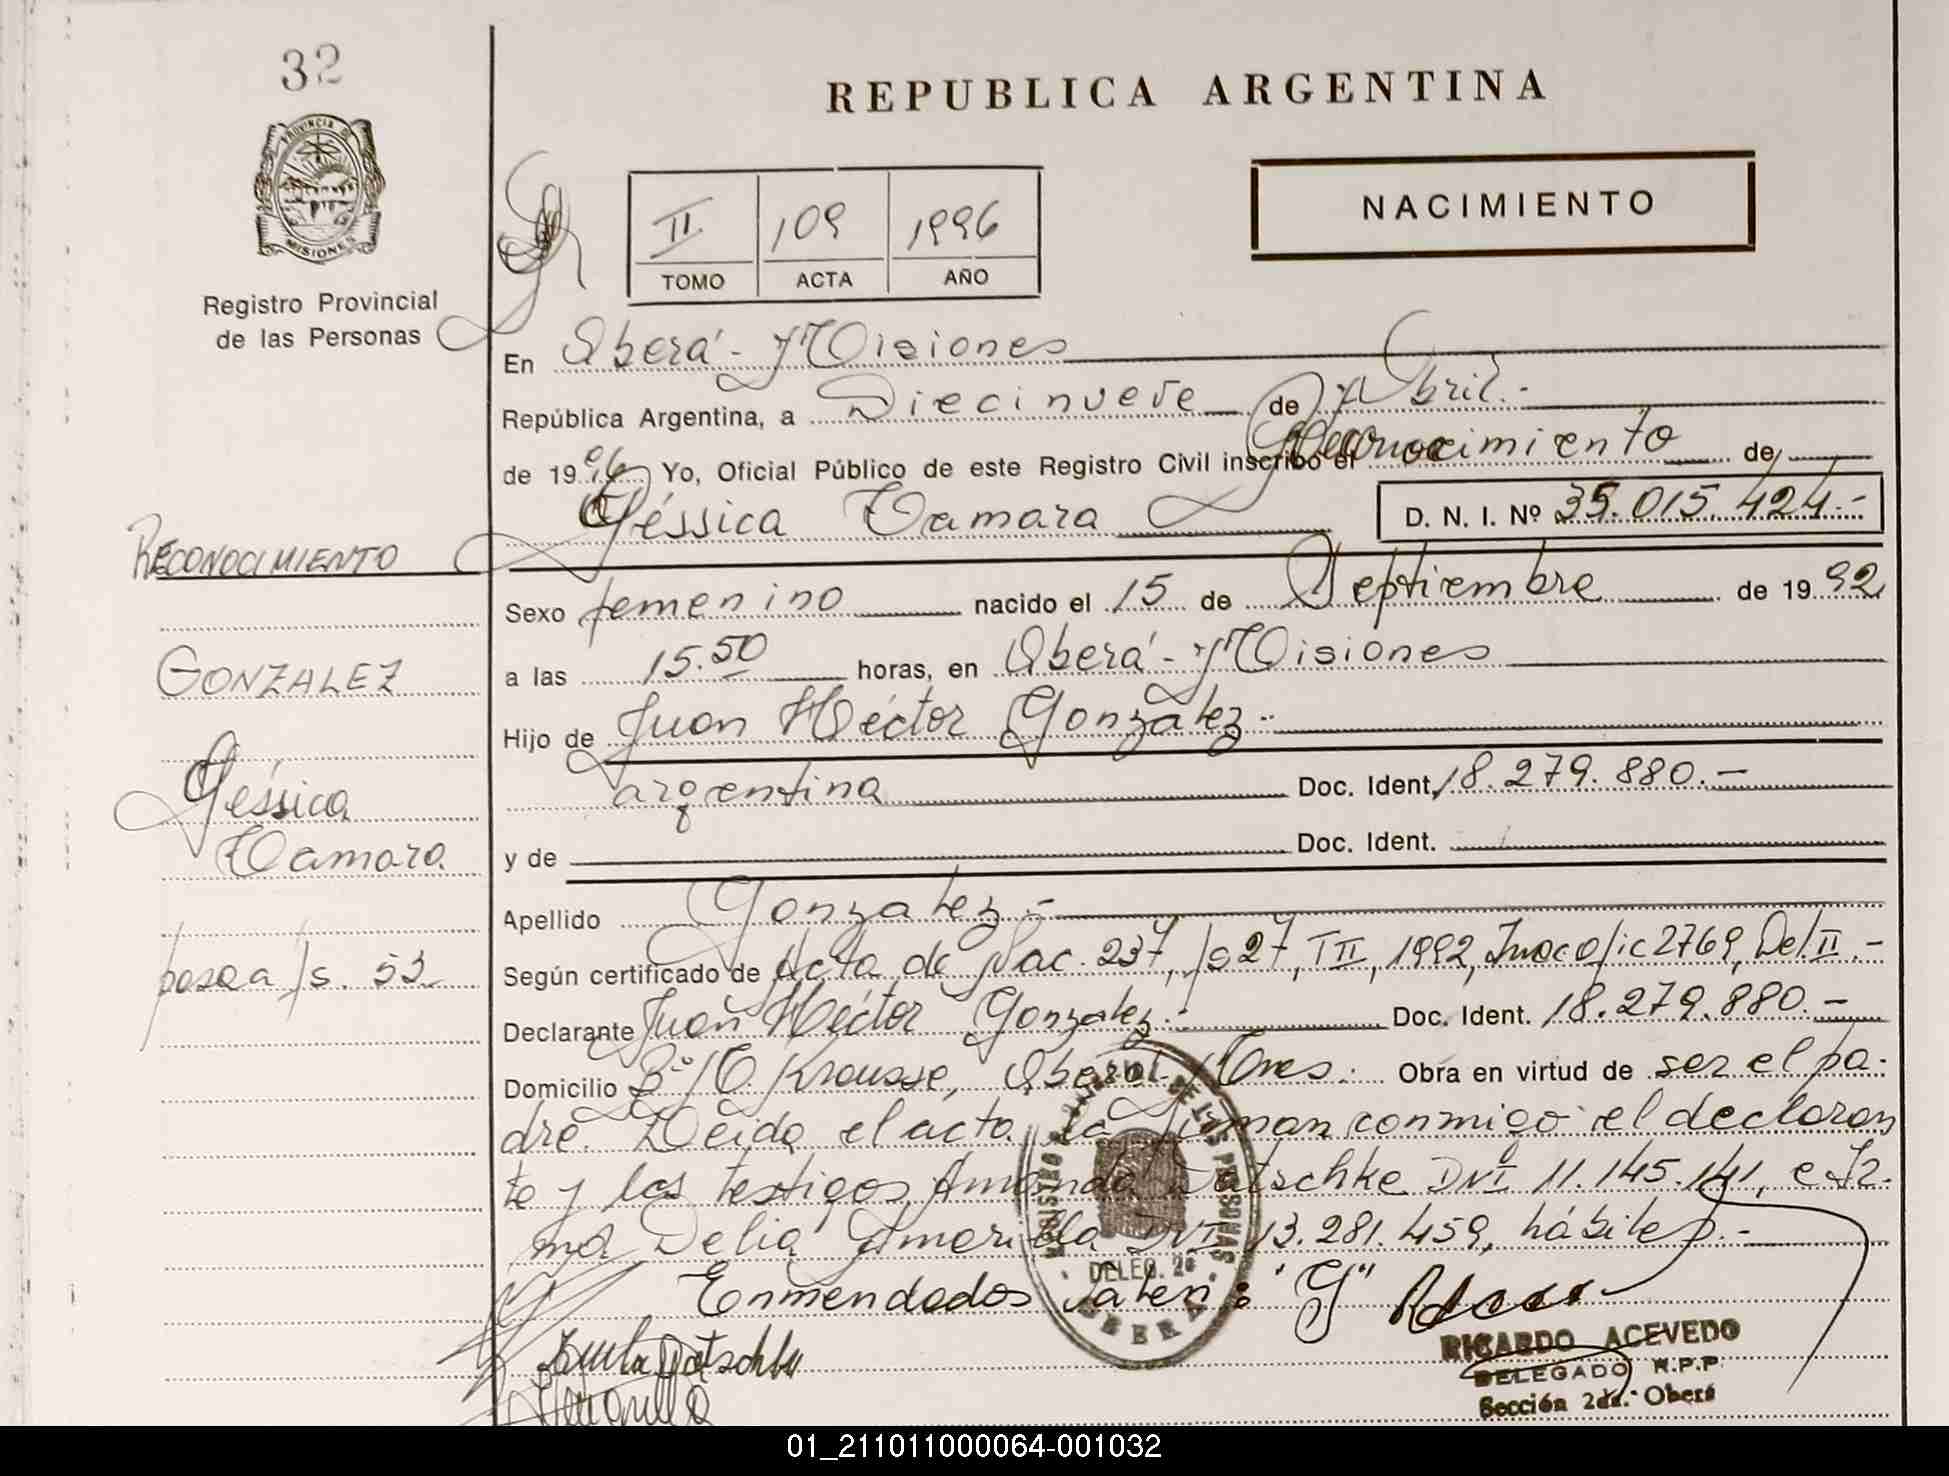 32
REPUBLICA ARGENTINA
PROVINCIA DE
MISIONES
Registro Provincial
de las Personas
II 109 1996
TOMO ACTA AÑO
NACIMIENTO
En Oberá - Misiones
República Argentina, a Diecinueve de Abril.-
de 1996 Yo, Oficial Público de este Registro Civil inscribo el Reconocimiento de
Géssica Tamara D. N. I. Nº 35.015.424.-
RECONOCIMIENTO
Sexo femenino nacido el 15 de Septiembre de 1992
GONZALEZ
a las 15.50 horas, en Oberá - Misiones
Hijo de Juan Héctor Gonzalez.-
Géssica
Tamara
argentina Doc. Ident. 18.279.880.-
y de Doc. Ident.
Apellido Gonzalez.-
pasa a fs. 53
Según certificado de Acta de Nac. 237, fs 27, T II, 1992, 2769, Del. II.-
Declarante Juan Héctor Gonzalez.- Doc. Ident. 18.279.880.-
Domicilio Bº Krausse, Oberá - Mnes. Obra en virtud de ser el pa-
dre. Leida el acta la firman conmigo el declaran
te y los testigos Amanda Datschke DNI 11.145.141, e Ir-
ma Delia Amarilla DNI 13.281.459, hábiles.-
Enmendados valen: "G"
REGISTRO PROVINCIAL DE LAS PERSONAS
DELEG. 2ª
OBERA
RICARDO ACEVEDO
DELEGADO R.P.P
Sección 2da. Oberá
01_211011000064-001032